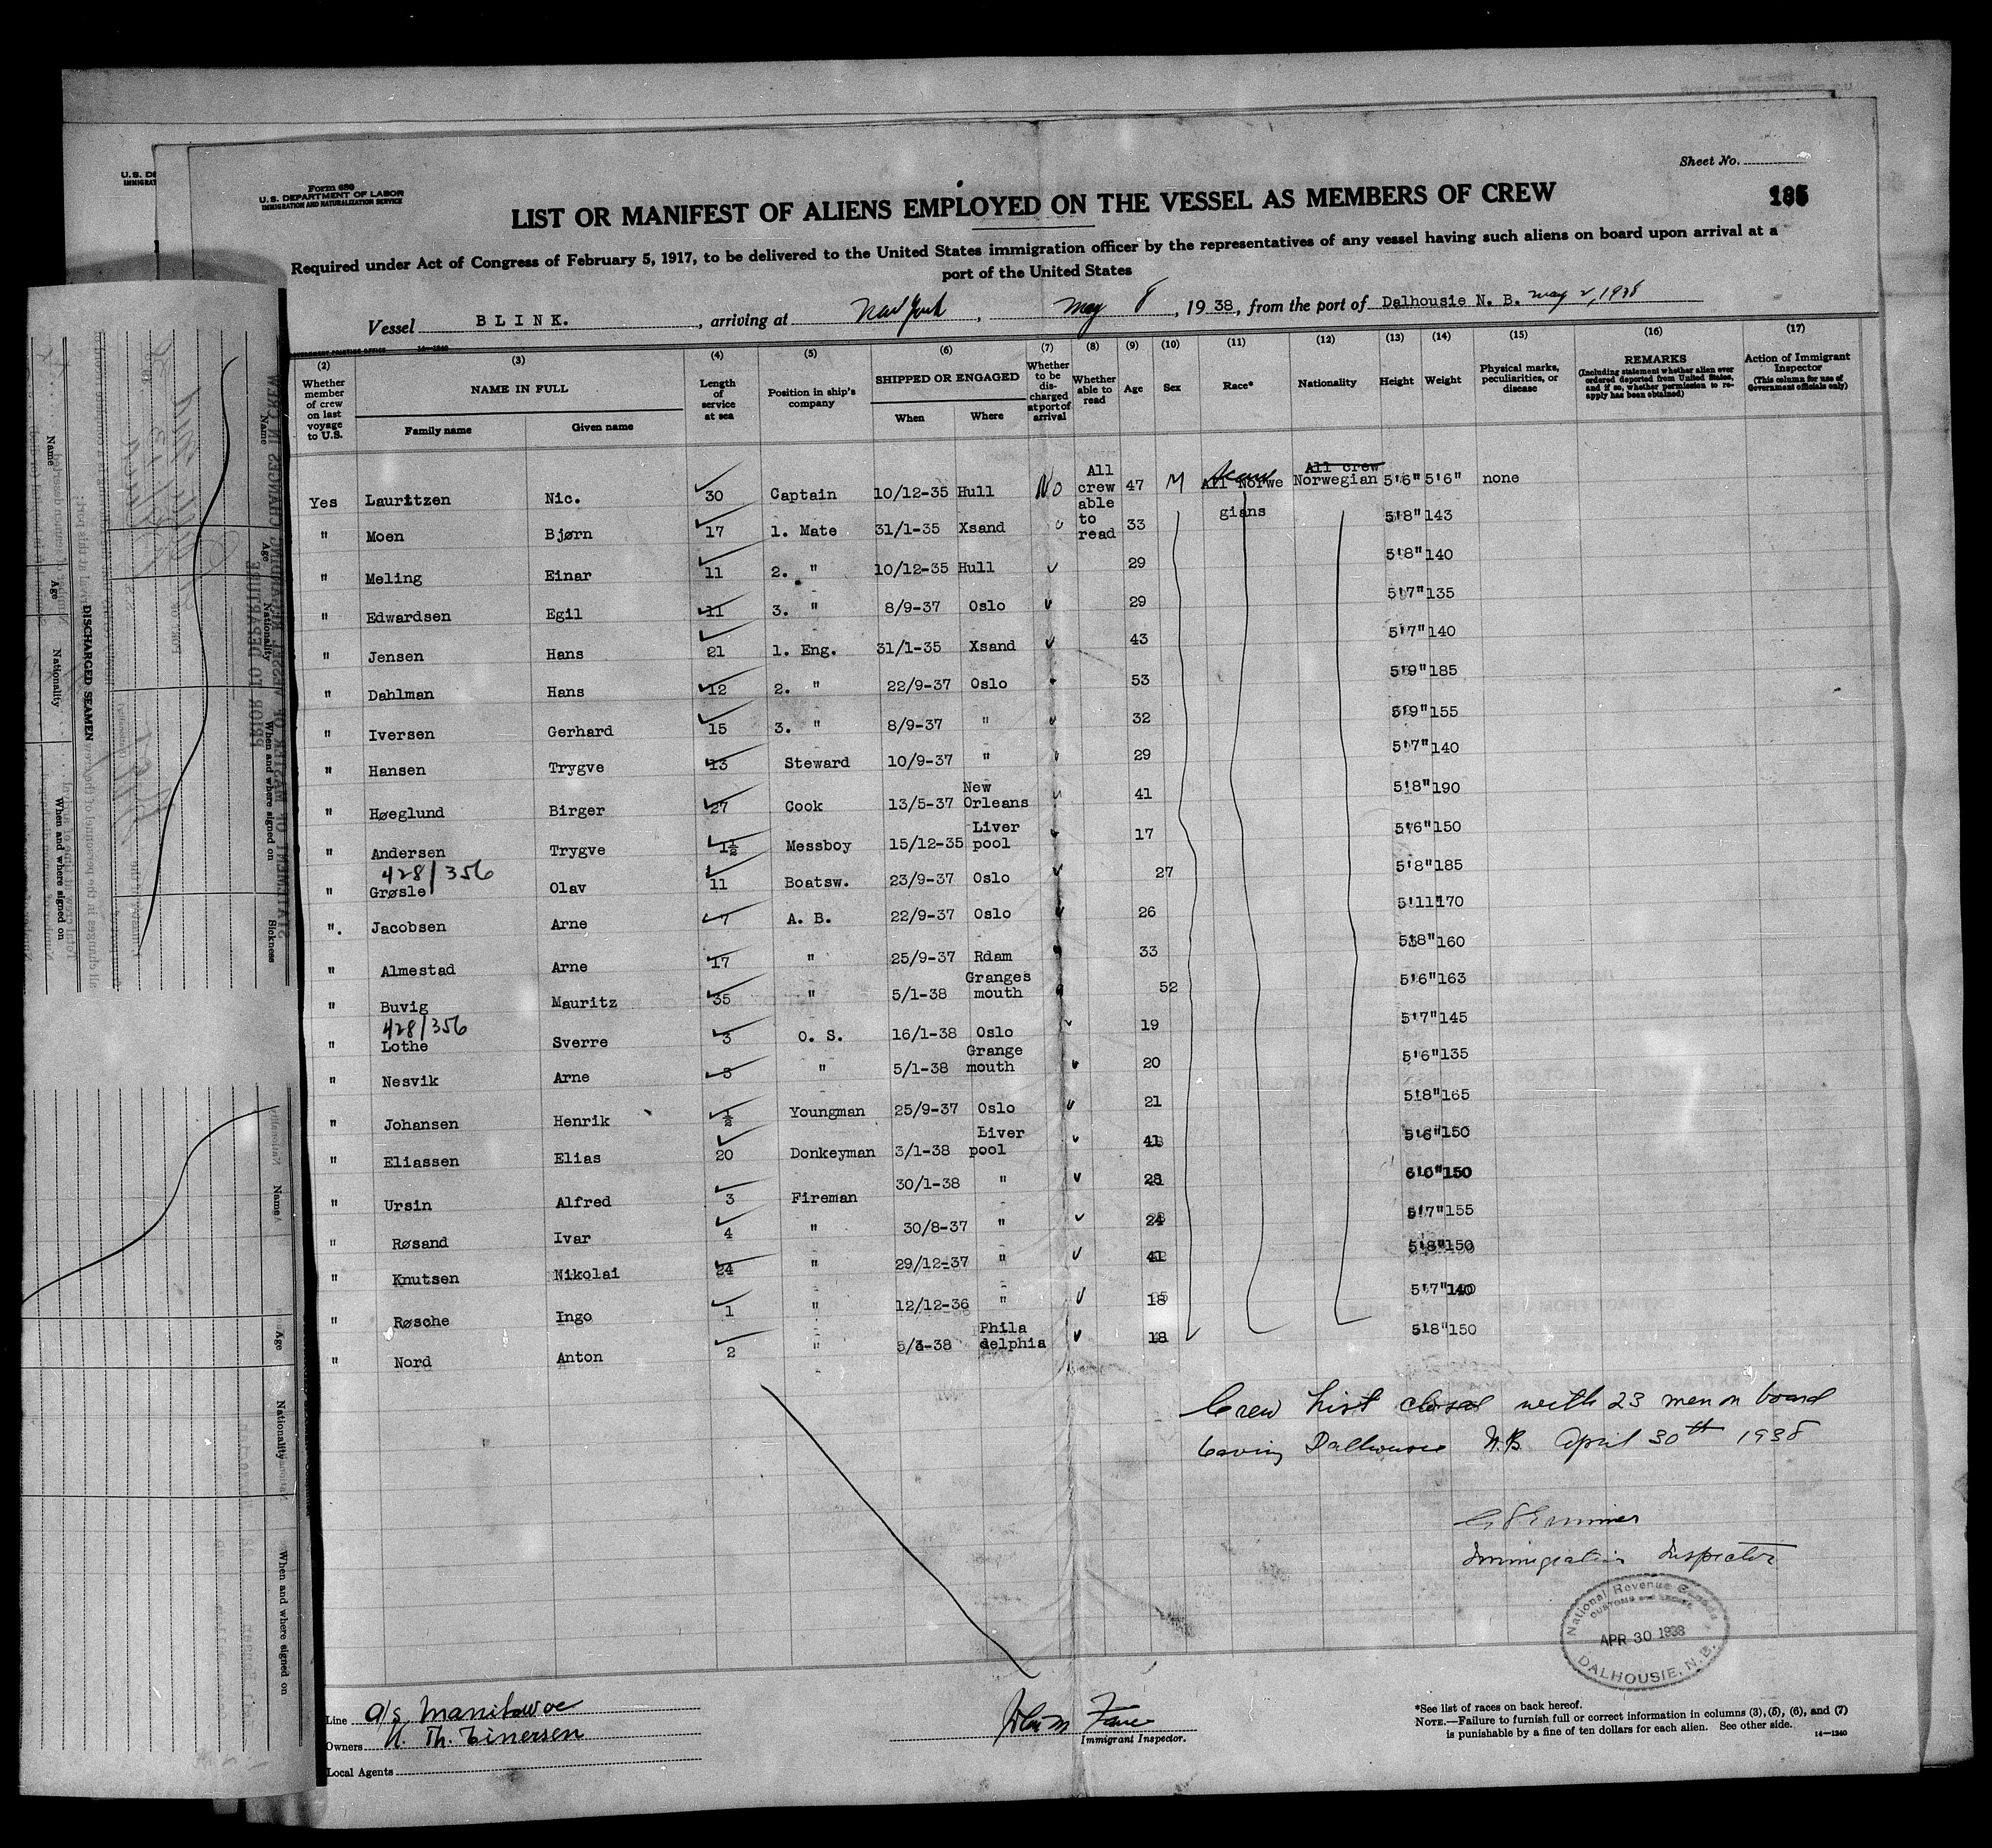 Sheet No.
Form 680
U.S. DEPARTMENT OF LABOR
IMMIGRATION AND NATURALIZATION SERVICE
185
LIST OR MANIFEST OF ALIENS EMPLOYED ON THE VESSEL AS MEMBERS OF CREW
Required under Act of Congress of February 5, 1917, to be delivered to the United States immigration officer by the representatives of any vessel having such aliens on board upon arrival at a
port of the United States
Vessel BLINK. , arriving at New York , May 8 , 1938, from the port of Dalhousie N. B. May 2, 1938
(2) (3) (4) (5) (6) (7) (8) (9) (10) (11) (12) (13) (14) (15) (16) (17)
Whether member of crew on last voyage to U.S.
NAME IN FULL
Family name Given name
Length of service at sea
Position in ship's company
SHIPPED OR ENGAGED
When Where
Whether to be discharged at port of arrival
Whether able to read
Age Sex Race* Nationality Height Weight
Physical marks, peculiarities, or disease
REMARKS
(Including statement whether alien ever ordered deported from United States, and if so, whether permission to reapply has been obtained)
Action of Immigrant Inspector
(This column for use of Government officials only)
Yes Lauritzen Nic. 30 Captain 10/12-35 Hull No All crew able to read 47 M All Norwegians All crew Norwegian 5'6" 5'6" none
" Moen Bjørn 17 1. Mate 31/1-35 Xsand 33 5'8" 143
" Meling Einar 11 2. " 10/12-35 Hull 29 5'8" 140
" Edwardsen Egil 11 3. " 8/9-37 Oslo 29 5'7" 135
" Jensen Hans 21 1. Eng. 31/1-35 Xsand 43 5'7" 140
" Dahlman Hans 12 2. " 22/9-37 Oslo 53 5'9" 185
" Iversen Gerhard 15 3. " 8/9-37 " 32 5'9" 155
" Hansen Trygve 13 Steward 10/9-37 " 29 5'7" 140
" Høeglund Birger 27 Cook 13/5-37 New Orleans 41 5'8" 190
" Andersen Trygve 1½ Messboy 15/12-35 Liver pool 17 5'6" 150
428/356
" Grøsle Olav 11 Boatsw. 23/9-37 Oslo 27 5'8" 185
". Jacobsen Arne 7 A. B. 22/9-37 Oslo 26 5'11" 170
" Almestad Arne 17 " 25/9-37 Rdam 33 5'8" 160
" Buvig Mauritz 35 " 5/1-38 Granges mouth 52 5'6" 163
428/356
" Lothe Sverre 3 O. S. 16/1-38 Oslo 19 5'7" 145
" Nesvik Arne 3 " 5/1-38 Grange mouth 20 5'6" 135
" Johansen Henrik ½ Youngman 25/9-37 Oslo 21 5'8" 165
" Eliassen Elias 20 Donkeyman 3/1-38 Liver pool 5'6" 150
" Ursin Alfred 3 Fireman 30/1-38 " 6'0" 150
" Røsand Ivar 4 " 30/8-37 " 24 5'7" 155
" Knutsen Nikolai 24 " 29/12-37 " 41 5'8" 150
" Røsche Ingo 1 " 12/12-36 " 18 5'7" 140
" Nord Anton 2 " Phila delphia 18 5'8" 150
Crew List closed with 23 men on board
leaving Dalhousie N.B. April 30th 1938
Immigration Inspector
National Revenue Canada
CUSTOMS AND EXCISE
APR 30 1938
DALHOUSIE, N.B.
Line A/S Manitowoc
Owners N. Th. Einersen
Local Agents
Immigrant Inspector.
*See list of races on back hereof.
NOTE.—Failure to furnish full or correct information in columns (3), (5), (6), and (7)
is punishable by a fine of ten dollars for each alien. See other side.
14—1240
DISCHARGED SEAMEN
Name Age Nationality When and where signed on
Name Age Nationality When and where signed on Sickness
Name Age Nationality When and where signed on